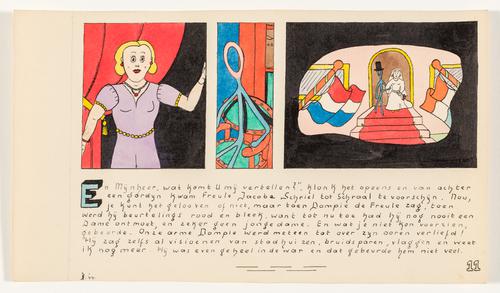 En Mijnheer, wat komt U mij vertellen?". Klonk het opeens en van achter
een gordijn kwam Freule Jacoba Schriel tot Schraal te voorschijn. Nou,
je kunt het gelooven of niet, maar toen Dompie de Freule zag, toen
werd hij beurtelings rood en bleek, want tot nu toe had hij nog nooit een
Dame ontmoet, en zeker geen jonge dame. En wat je niet kon voorzien,
gebeurde. Onze arme Dompie werd meteen tot over zijn ooren verliefd!
Hij zag zelfs al visioenen van stadhuizen, bruidsparen, vlaggen en weet
ik nog meer. Hij was even geheel in de war en dat gebeurde hem niet veel.
11